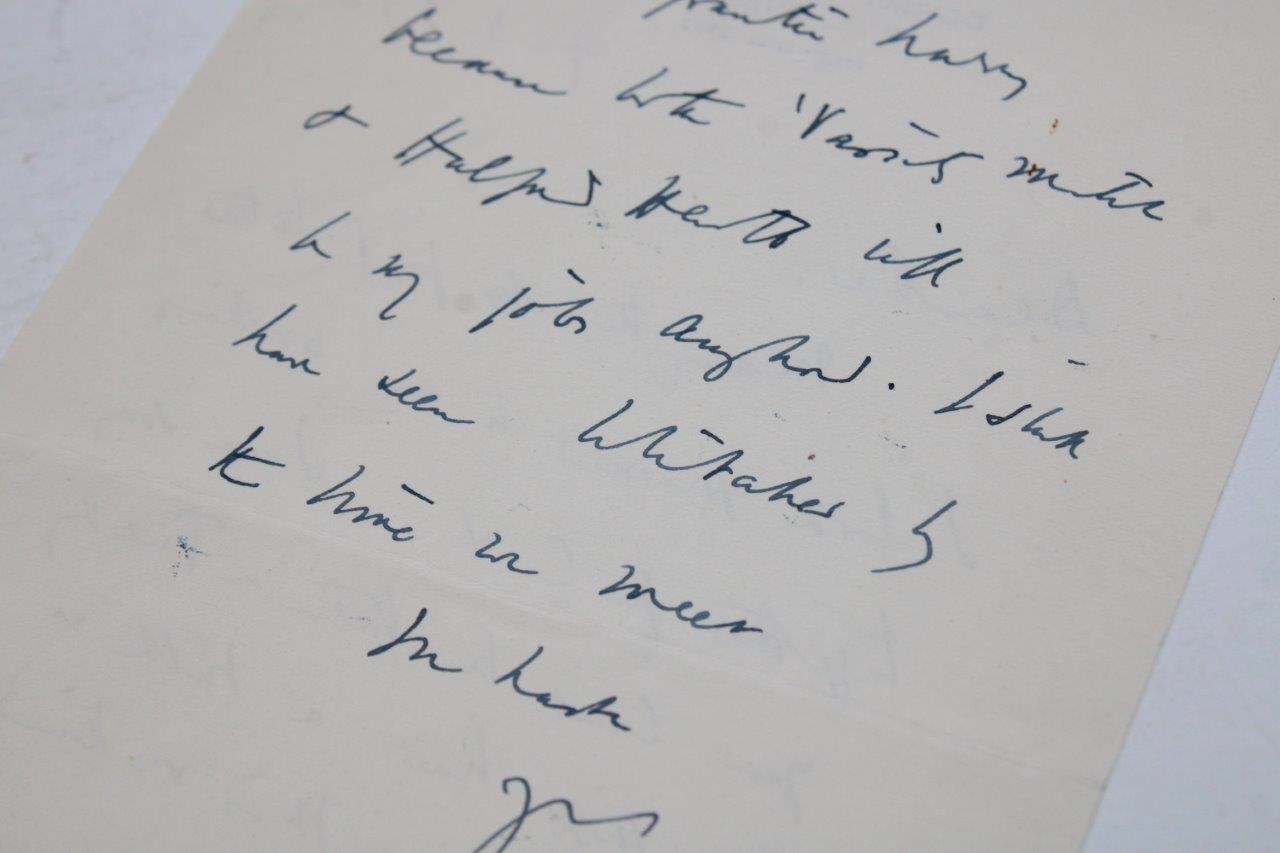 frantic hurry
because both 'Varsity matches
& Halford Hewitt will
be my jobs anyhow. I shall
have seen Whitaker by
the time we meet
In haste
Yrs